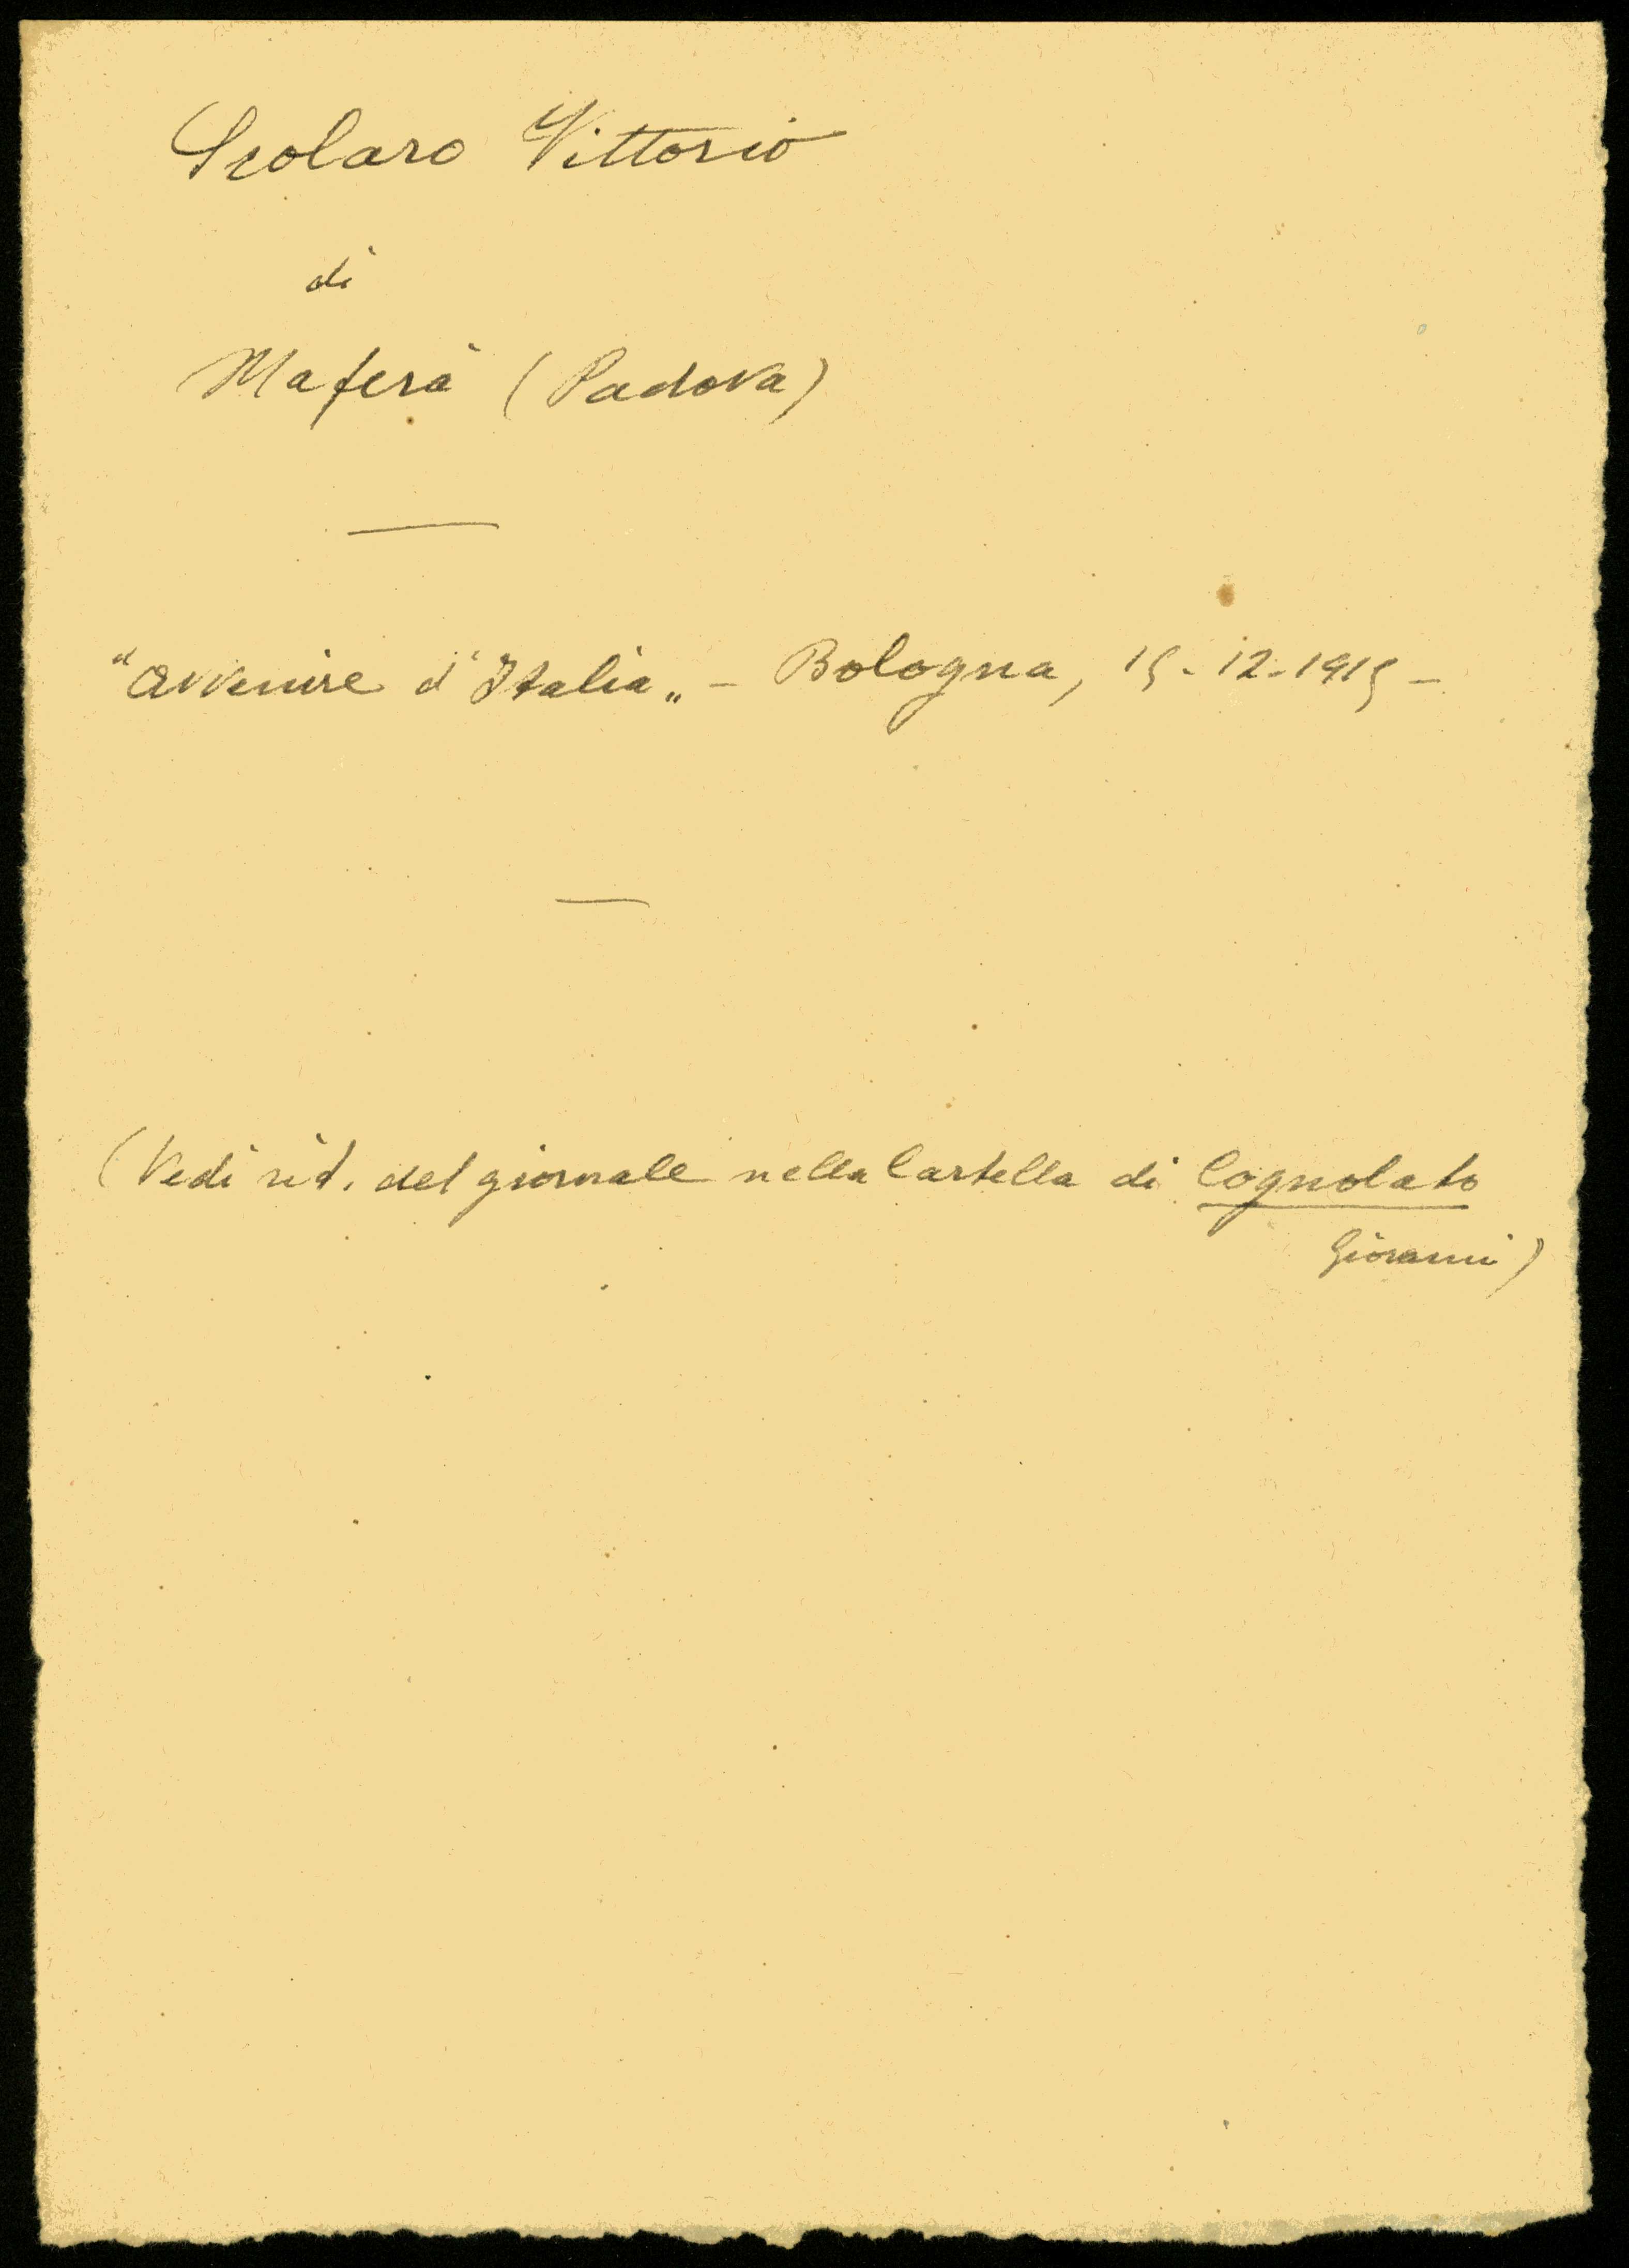 Scolaro Vittorio
di
Maserà (Padova)
"Avvenire d'Italia„ - Bologna, 15-12-1915-
(Vedi rit. del giornale nella Cartella di Cognolato
Giovanni)